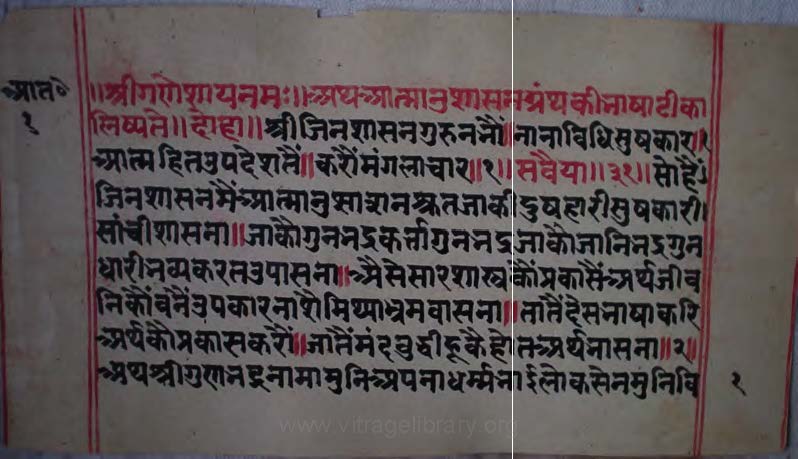 आत॰
१
॥श्रीगणेशायनमः॥अथआत्मानुशासनग्रंथकीभाषाटीका
लिष्यते॥दोहा॥श्रीजिनशासनगुरुनमौं॥नानाविधिसुषकार॥
आत्महितउपदेशतैं॥करौंमंगलाचार॥१॥सवैया॥३१॥सोहैं
जिनशासनमैंआत्मानुसाशनश्रुतजाकीदुषहारीसुषकारी
सांचीशासना॥जाकौगुनभद्रकर्त्तागुनभद्रजाकौजानिभद्रगुन
धारीभव्यकरतउपासना॥अैसेसारशास्त्रकौंप्रकासैंअर्थजीव
निकौंबनैंउपकारनाशैमिथ्याभ्रमवासना॥तातैंदेसभाषाकरि
अर्थकौप्रकासकरौं॥जातैंमंदबुद्वीहूकैहोतअर्थभासना॥२॥
अथश्रीगुणभद्रनामामुनिअपनाधर्म्मभाईलोकसेनमुनिवि
१
www.vitragelibrary.org